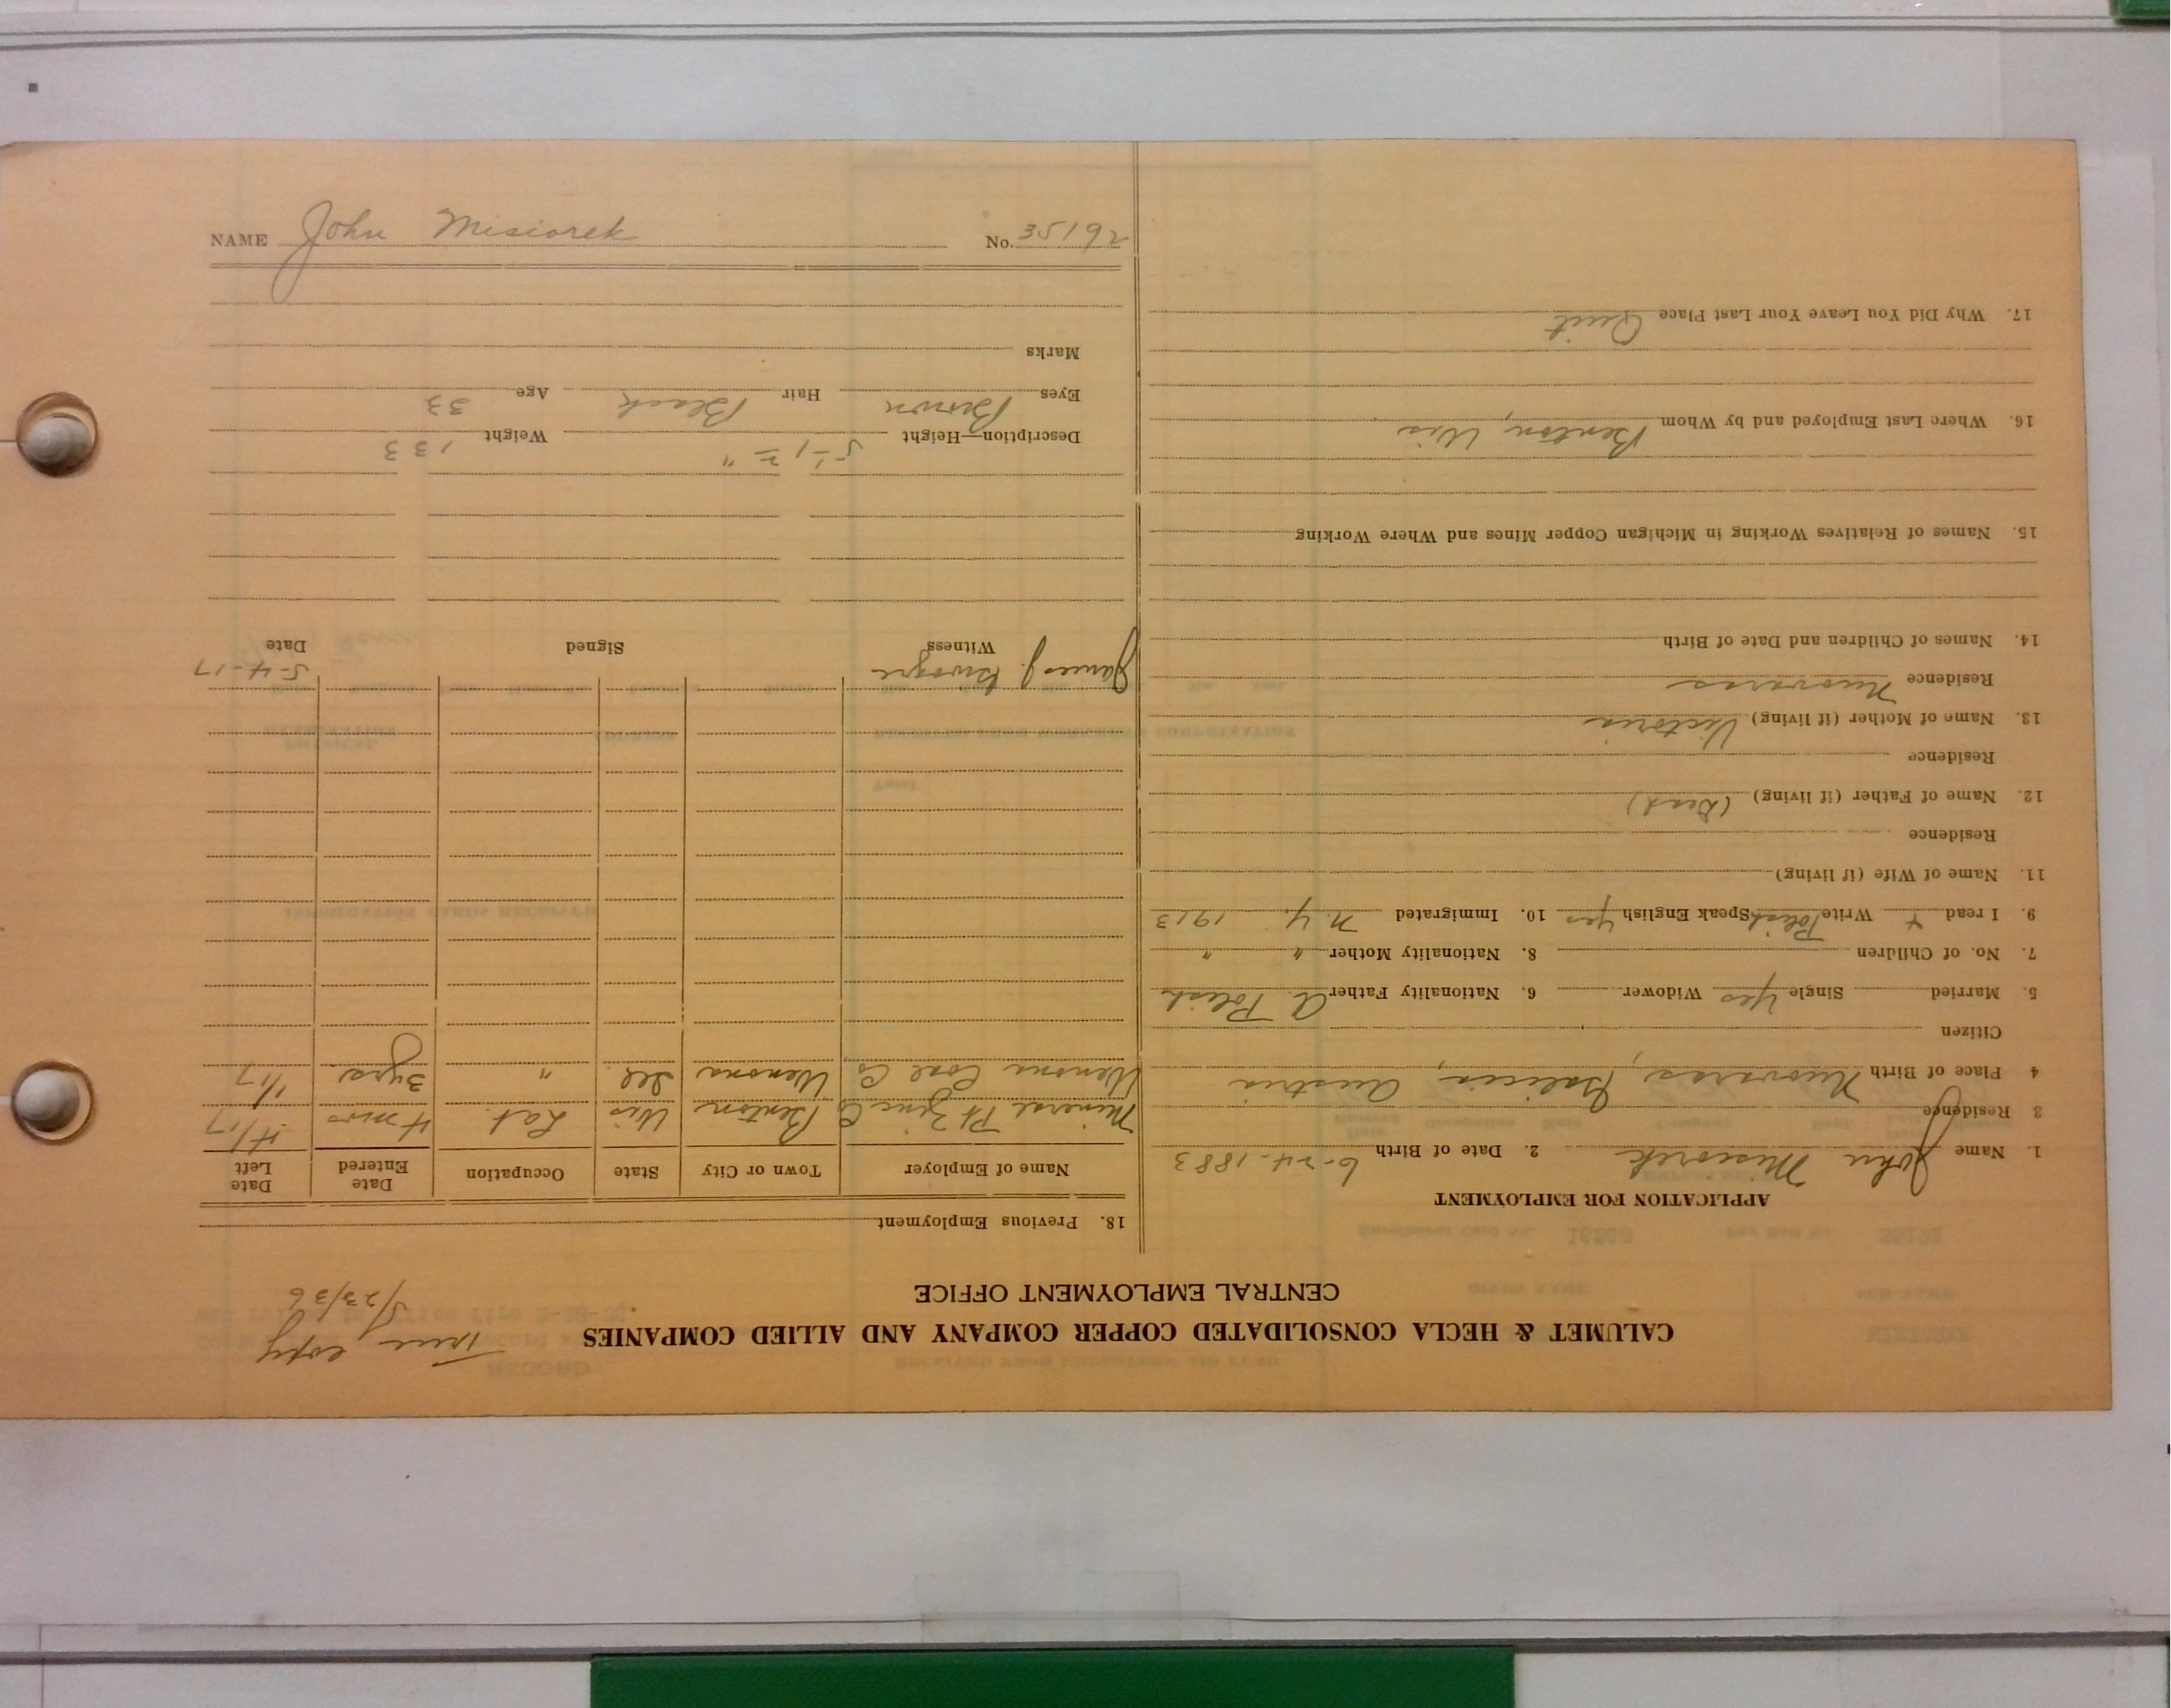 CALUMET & HECLA CONSOLIDATED COPPER COMPANY AND ALLIED COMPANIES
CENTRAL EMPLOYMENT OFFICE
True copy
5/23/36
APPLICATION FOR EMPLOYMENT
1. Name John Misiorek 2. Date of Birth 6-24-1883
3 Residence
4 Place of Birth Galicia, Austria
Citizen
5. Married Single Yes Widower 6. Nationality Father A Polish
7. No. of Children 8. Nationality Mother " "
9. I read + Write Polish Speak English Yes 10. Immigrated N.Y. 1913
11. Name of Wife (if living)
Residence
12. Name of Father (if living) (Dead)
Residence
13. Name of Mother (if living) Victoria
Residence
14. Names of Children and Date of Birth
15. Names of Relatives Working in Michigan Copper Mines and Where Working
16. Where Last Employed and by Whom Benton, Wis
17. Why Did You Leave Your Last Place Quit
18. Previous Employment
Name of Employer Town or City State Occupation Date Entered Date Left
Mineral Pt Zinc Co Benton Wis Lab. 4 mos 4/17
Wenona Coal Co Wenona Ill. " 3 yrs. 1/17
James J. 5-4-17
Witness Signed Date
Description—Height 5-1½" Weight 133
Eyes Brown Hair Black Age 33
Marks
NAME John Misiorek No. 35192